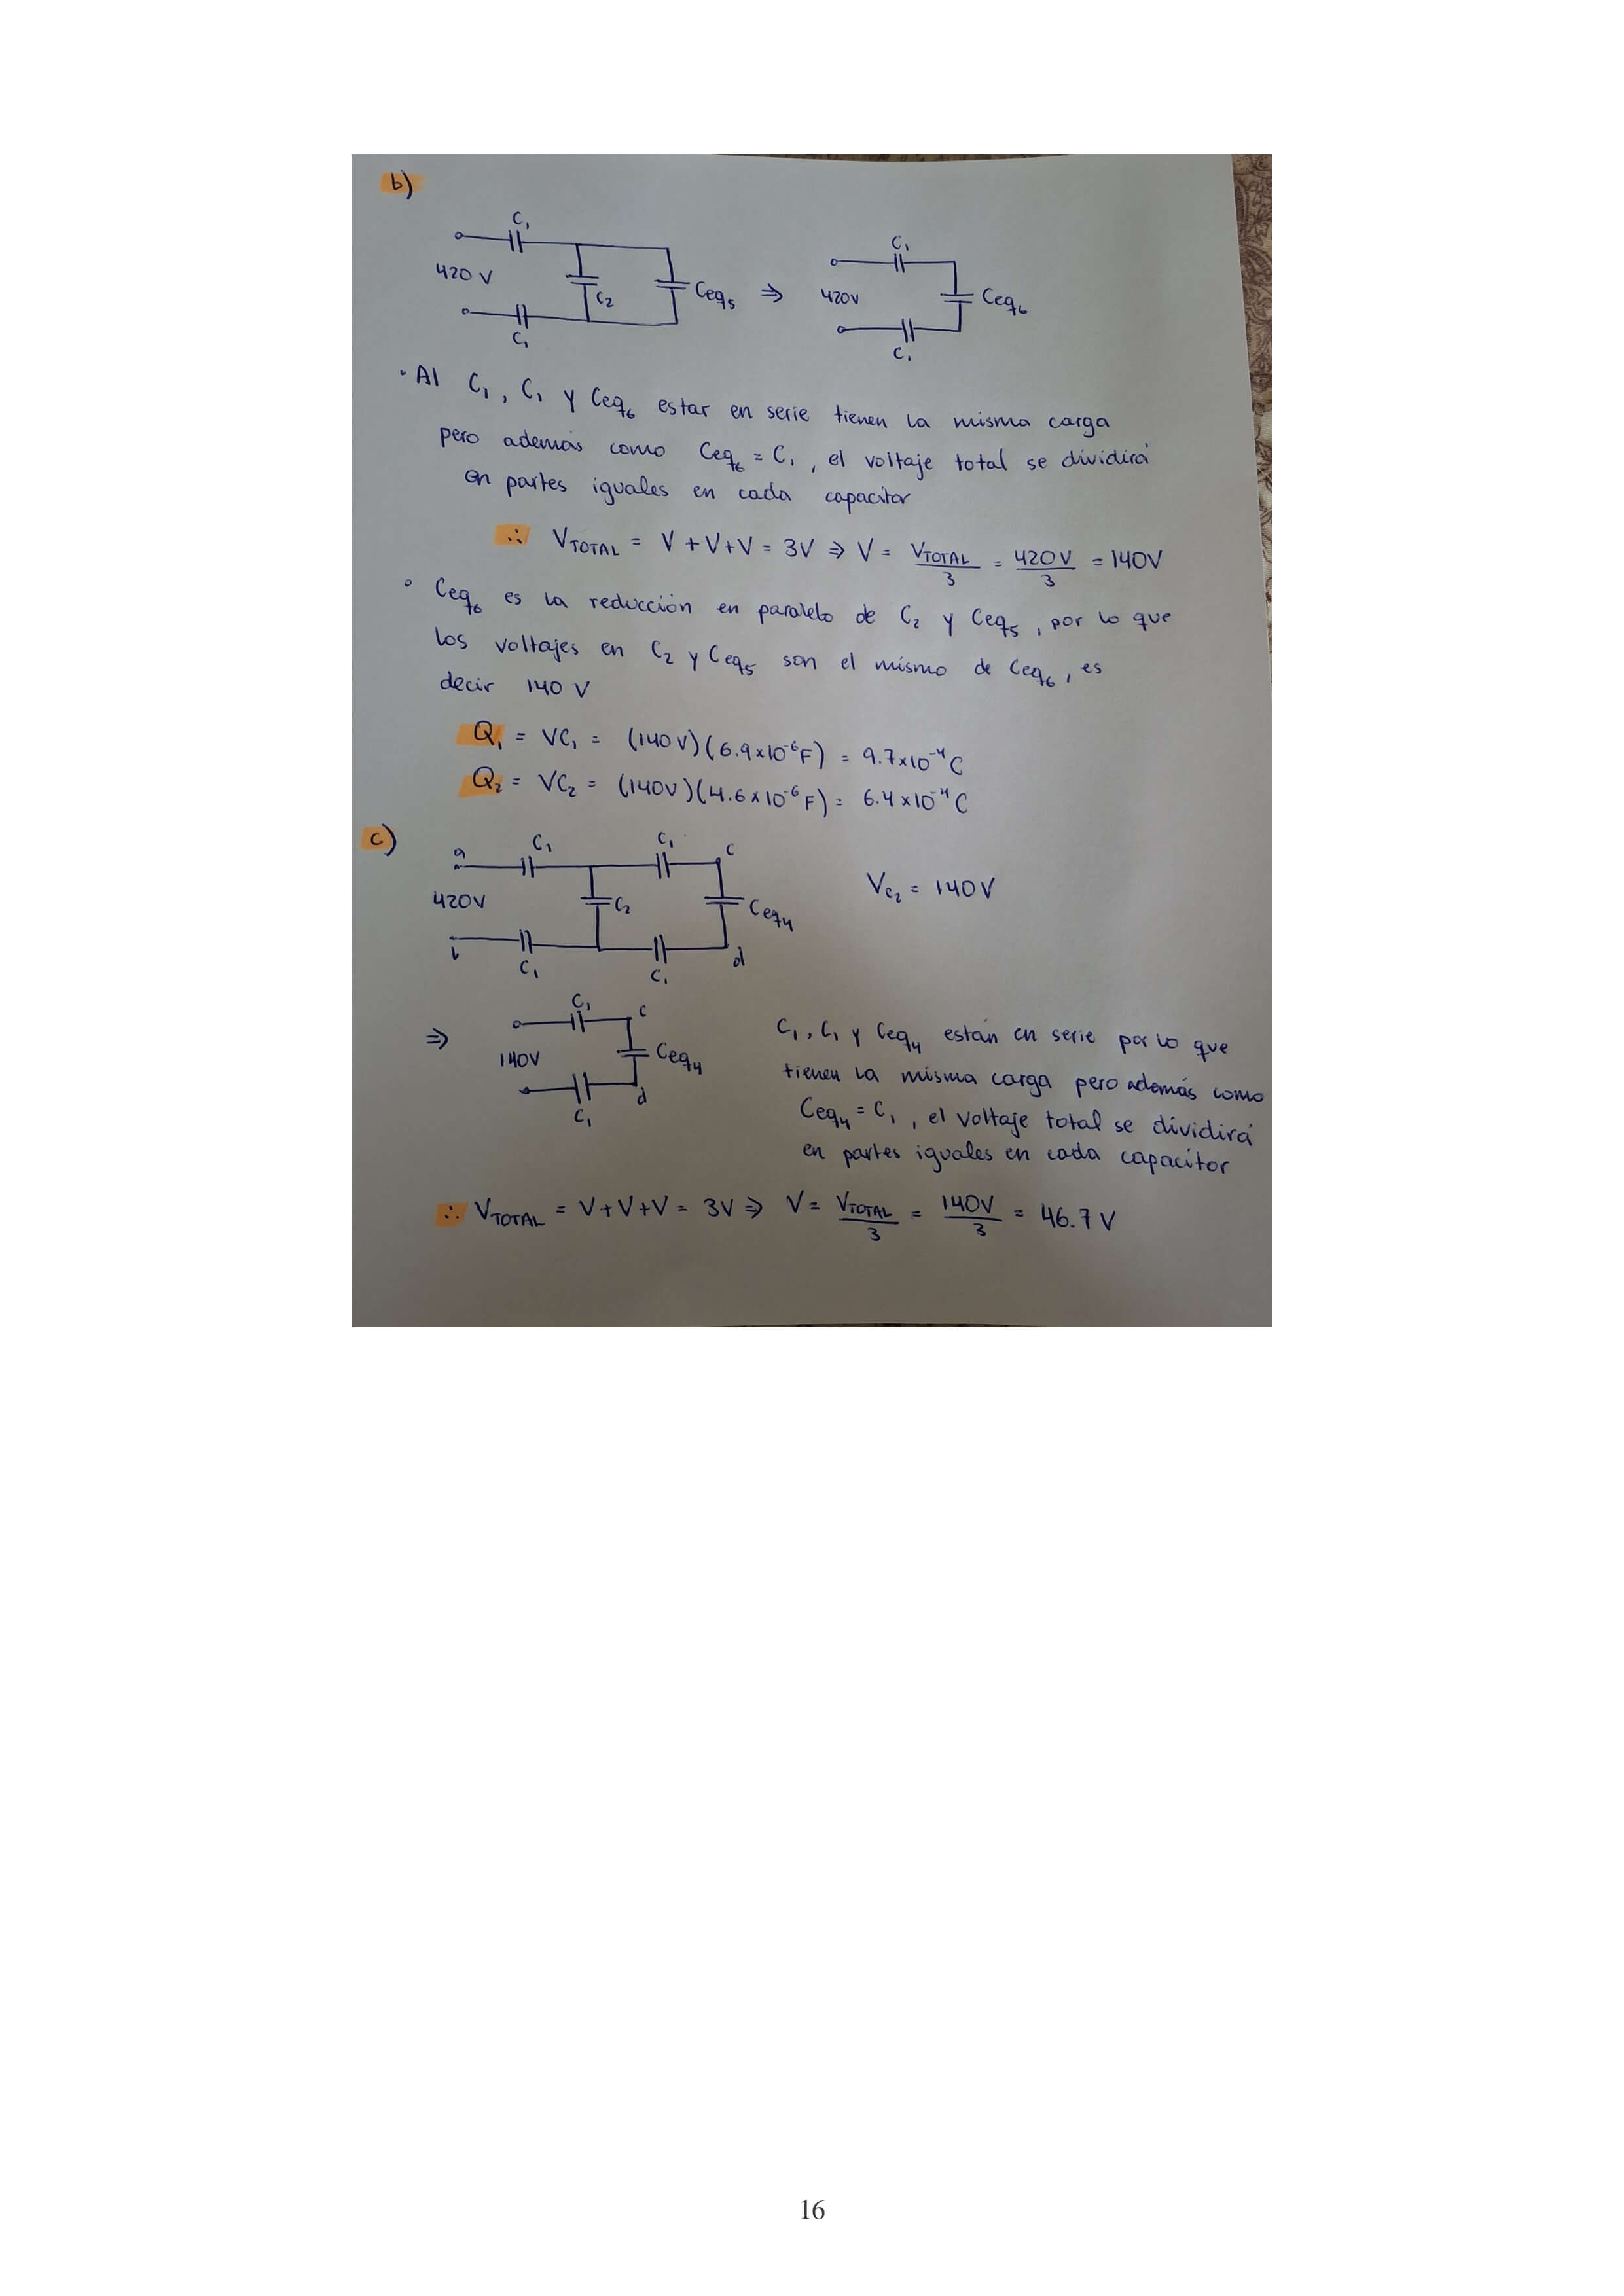 b)
C₁
420 V
C₂
Ceq₅
⇒
C₁
C₁
420V
Ceq₆
C₁
• Al C₁, C₁ y Ceq₆ estar en serie tienen la misma carga
pero además como Ceq₆ = C₁, el voltaje total se dividirá
en partes iguales en cada capacitor
∴ V_TOTAL = V + V + V = 3V ⇒ V = V_TOTAL/3 = 420V/3 = 140V
• Ceq₆ es la reducción en paralelo de C₂ y Ceq₅, por lo que
los voltajes en C₂ y Ceq₅ son el mismo de Ceq₆, es
decir 140 V
Q₁ = VC₁ = (140V)(6.9x10⁻⁶F) = 9.7x10⁻⁴C
Q₂ = VC₂ = (140V)(4.6x10⁻⁶F) = 6.4x10⁻⁴C
c)
a
C₁
C₁
c
420V
C₂
Ceq₄
V_C₂ = 140V
b
C₁
C₁
d
⇒
C₁
c
140V
Ceq₄
C₁
d
C₁, C₁ y Ceq₄ están en serie por lo que
tienen la misma carga pero además como
Ceq₄ = C₁, el voltaje total se dividirá
en partes iguales en cada capacitor
∴ V_TOTAL = V + V + V = 3V ⇒ V = V_TOTAL/3 = 140V/3 = 46.7 V
16